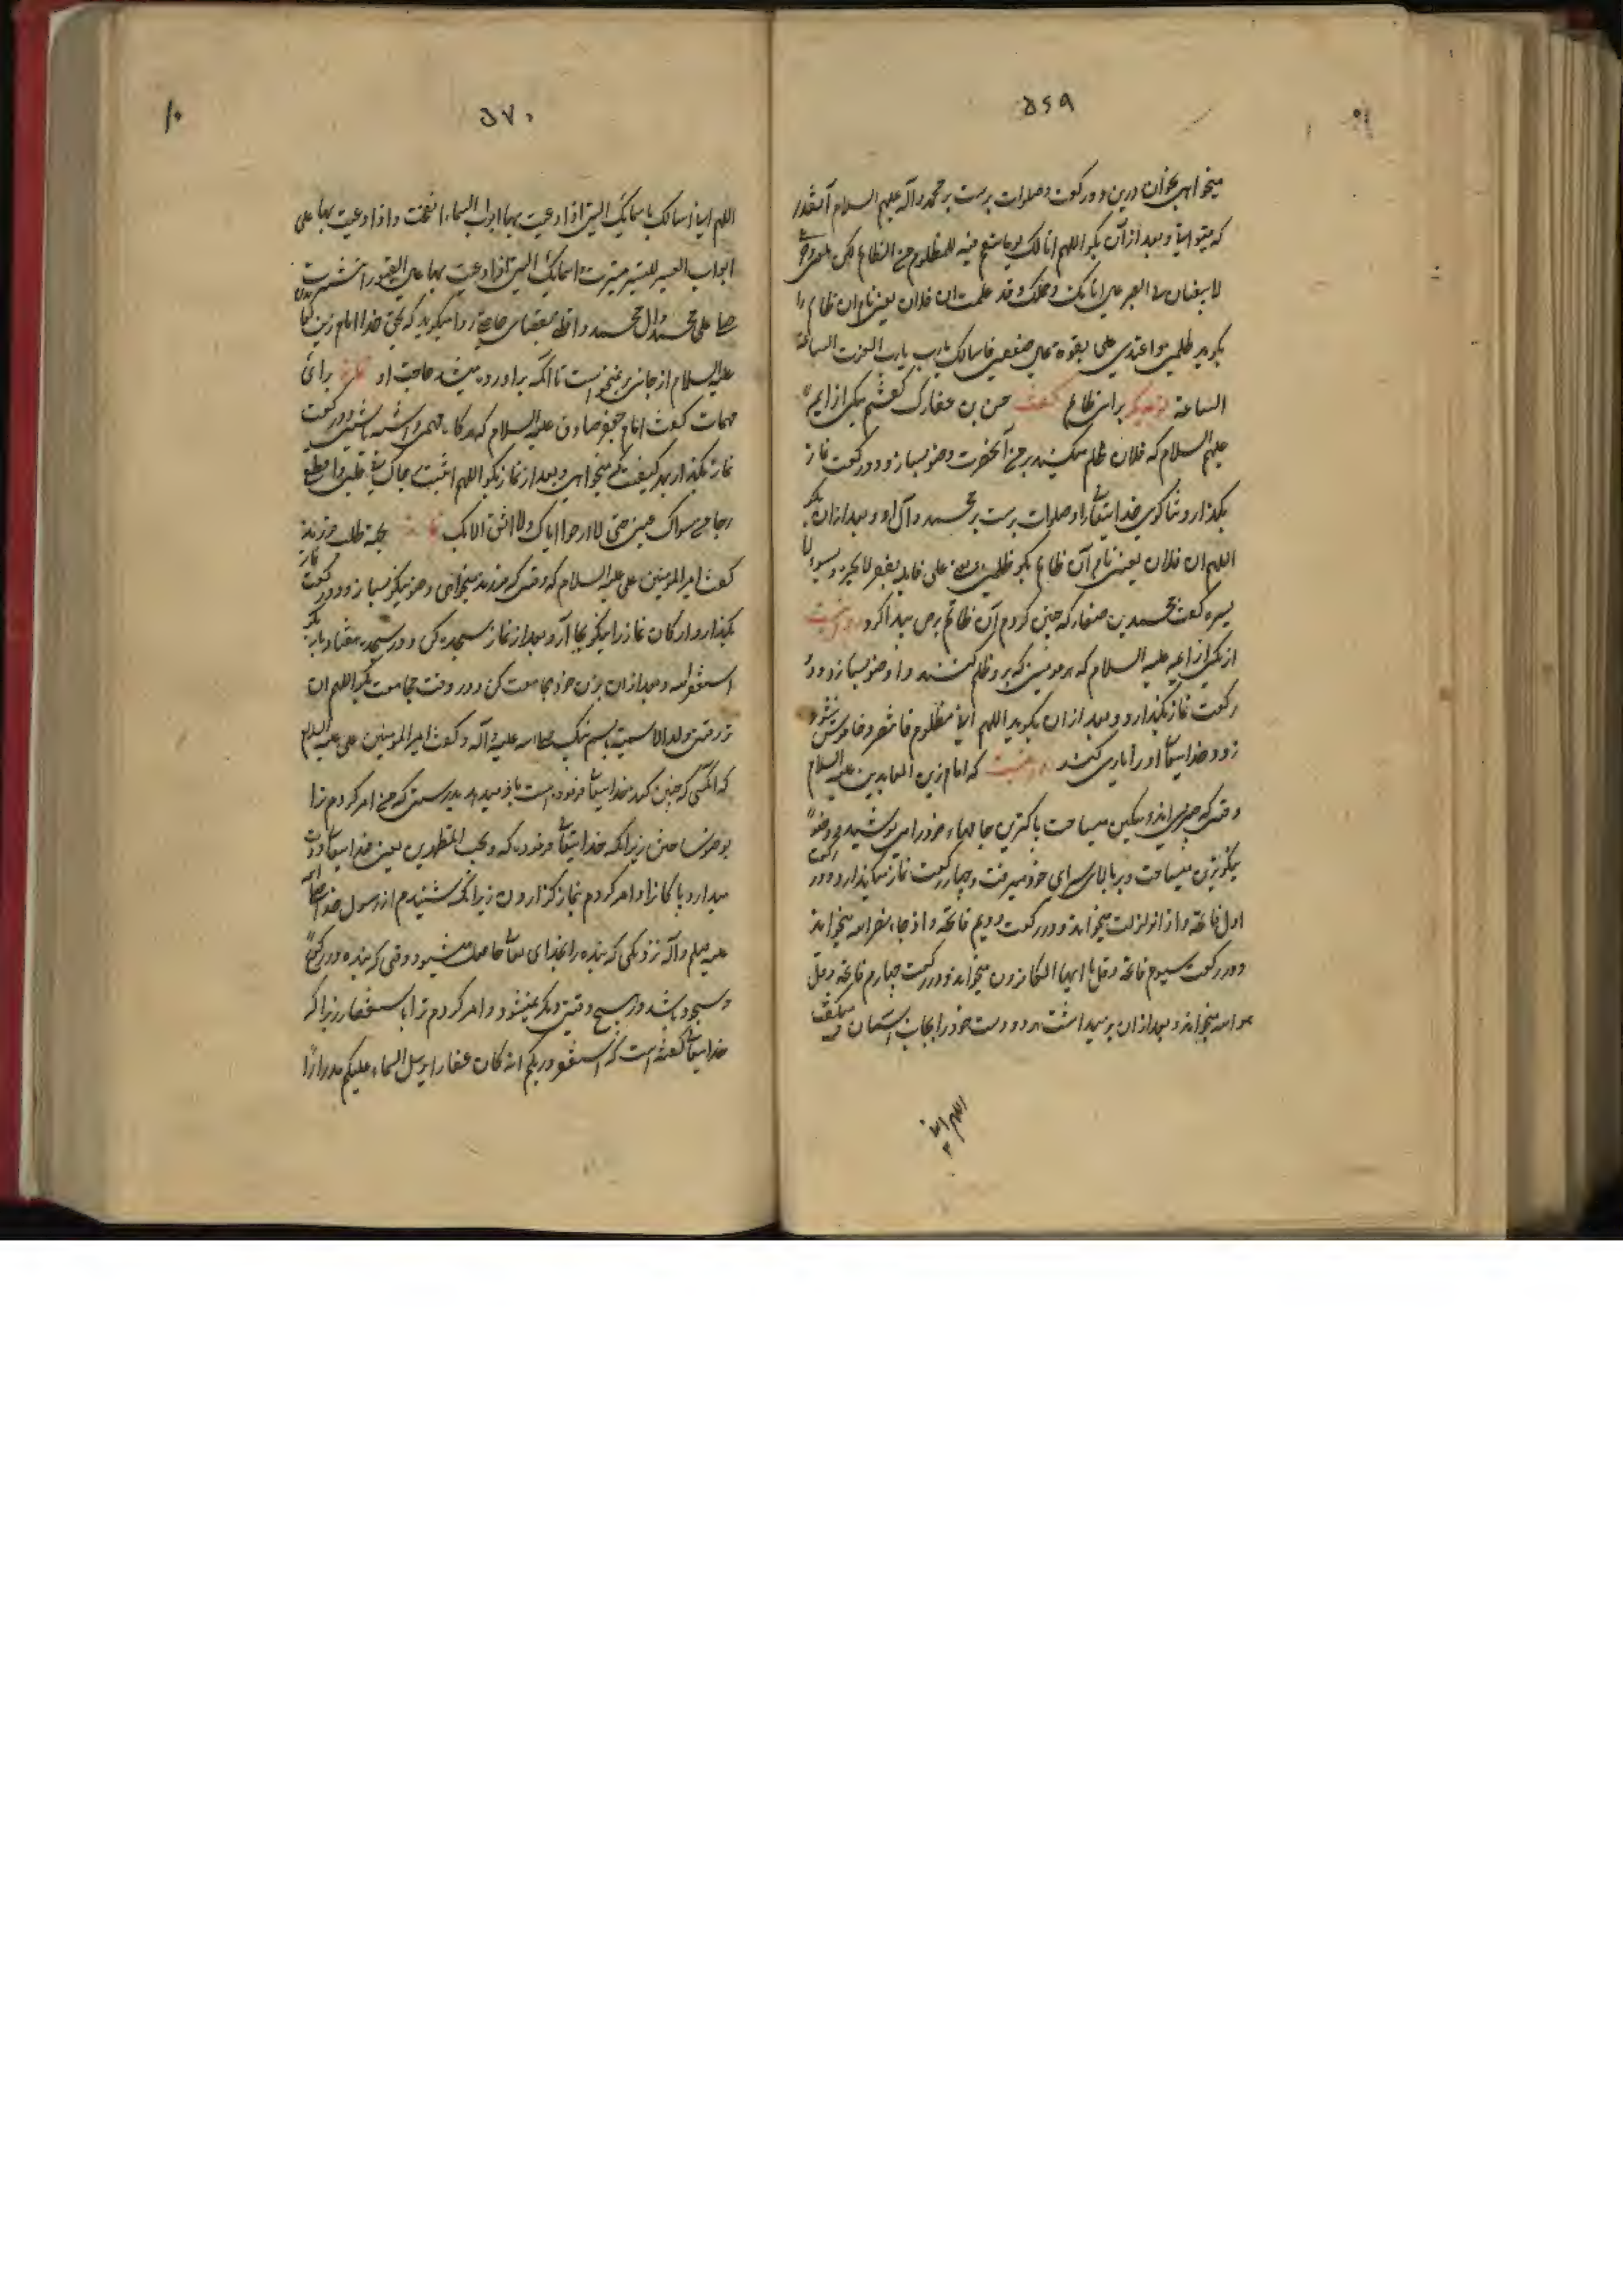 ۵۶۹
میخواهی بخوان درین دو رکعت و صلوات برست بر محمد و آله علیهم السلام آنقدر
که میتوانی و بعد از آن بگو اللهم ان لک یوما ینتقم فیه للمظلوم من الظالم لکن
علی اناتک و حلمک و قد علمت ان فلان یعنی نام ان ظالم را
بگوید ظلمنی و اعتدی علی بقوته علی ضعفی فاسالک یا رب یا رب العزت الساعة
الساعة نوعدیگر برای ظالم گفت حسن بن گفتم بیکی از ایمه
علیهم السلام که فلان ظلم میکند بر من آنحضرت وضو بساز و دو رکعت نماز
بگذار و ثنا گوی خدایتعالی را و صلوات برست بر محمد و آل او و بعد از ان بگو
اللهم ان فلان یعنی نام آن ظالم بگو ظلمنی
یسره گفت محمد بن صفار که چنین کردم آن ظالم برص پیدا کرد
از یکی از ایمه علیه السلام که هر مومنی که برو ظلم کنند و او وضو بسازد و دو
رکعت نماز بگذارد و بعد از ان بگوید اللهم انی مظلوم فانتصر و خاموش شود
زود خدایتعالی او را یاری کند که امام زین العابدین علیه السلام
وقتی که چیزی اندوهگین میساخت پاکترین جامهاء خود را می پوشید و وضو
نیکوترین میساخت و بر بالای سرای خود میرفت و چهار رکعت نماز میگذارد و در رکعت
اول فاتحه و اذا زلزلت میخواند و در رکعت دویم فاتحه و اذا جاء نصر الله میخواند
و در رکعت سیوم فاتحه و قل یا ایها الکافرون میخواند و در رکعت چهارم فاتحه و قل
هو الله میخواند و بعد از ان بر میداشت هر دو دست خود را بجانب آسمان و میگفت
اللهم انی
۵۷۰
۱۰
اللهم انی اسالک باسمائک التی اذا دعیت بها ابواب السماء انفتحت و اذا دعیت بها علی
ابواب العسیر للتیسیر تیسرت و اسمائک التی اذا دعیت بها علی القبور انتشرت
صل علی محمد و ال محمد و اقلبنی بقضای حاجتی روا میگوید که بحق خدا امام زین
علیه السلام از جای بر نمیخواست تا انکه براورده میشد حاجت او نماز برای
مهمات گفت امام جعفر صادق علیه السلام که هر گاه مهمی داشته باشی دو رکعت
نماز بگذار بهر کیفیت که میخواهی و بعد از نماز بگو اللهم اثبت رجاک فی قلبی و اقطع
رجا من سواک عنی حتی لا ارجوا الا ایاک و لا اثق الا بک نماز بجهة طلب فرزند
گفت امیر المومنین علی علیه السلام که وقتی که فرزند میخواهی وضو نیکو بساز و دو رکعت نماز
بگذار و ارکان نماز را نیکو بجا آر و بعد از نماز سجده کن و در سجده هفتاد بار بگو
استغفر الله و بعد از ان بزن خود مجامعت کن و در وقت مجامعت بگو اللهم ان
ترزقنی ولدا لاسمیه باسم نبیک صلی الله علیه و آله و گفت امیر المومنین علی علیه السلام
که انکسی که چنین کند خدایتعالی فرزند است باو میدهد بدرستی که من امر کردم ترا
بوضو ساختن زیرا که خدایتعالی فرموده که و یحب المتطهرین یعنی خدایتعالی دوست
میدارد پاکان را و امر کردم بنماز گزاردن زیرا که شنیدم از رسول خدا صلی الله
علیه و سلم و آله نزدیکی که بنده را بخدای تعالی حاصل میشود وقتی که بنده در رکوع
و سجود باشد در هیچ وقتی دیگر نمیشود و امر کردم ترا باستغفار زیرا که
خدایتعالی گفته است که استغفروا ربکم انه کان غفارا یرسل السماء علیکم مدرارا